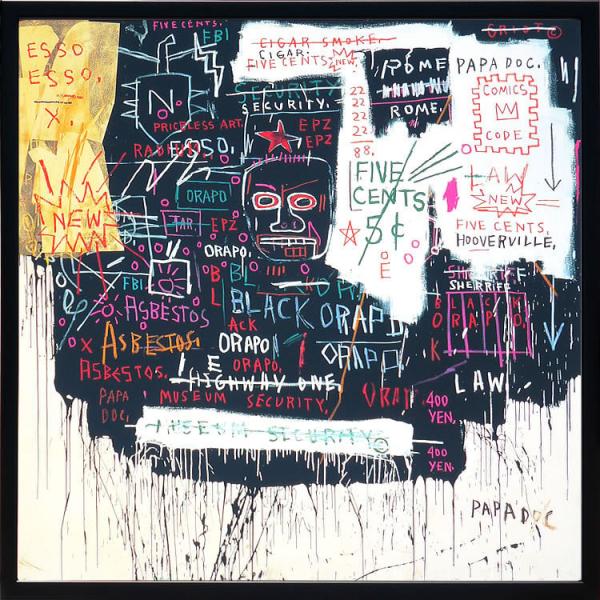 ESSO
ESSO.
X.
NEW
FIVE CENTS.
FBI
N
PRICELESS ART.
CIGAR SMOKE.
CIGAR:
FIVE CENTS NEW
SECURITY
SECURITY.
EPZ
EPZ
22
22
22
22
22
88.
ROME
ROME.
GRIOT©
PAPA DOC.
COMICS
CODE
LAW
NEW
FIVE CENTS.
HOOVERVILLE,
FIVE
CENTS
5¢
ORAPO
TAR.
EPZ
ORAPO.
FBI
ASBESTOS
ASBESTOS.
ASBESTOS.
BLACK ORAPO
ORAPO
ACK
ORAPO
ORAPO.
HIGHWAY ONE.
PAPA
DOC.
MUSEUM SECURITY.
MUSEUM SECURITY©
SHERIFF
SHERRIFF
LAW
400
YEN.
400
YEN.
PAPA DOC